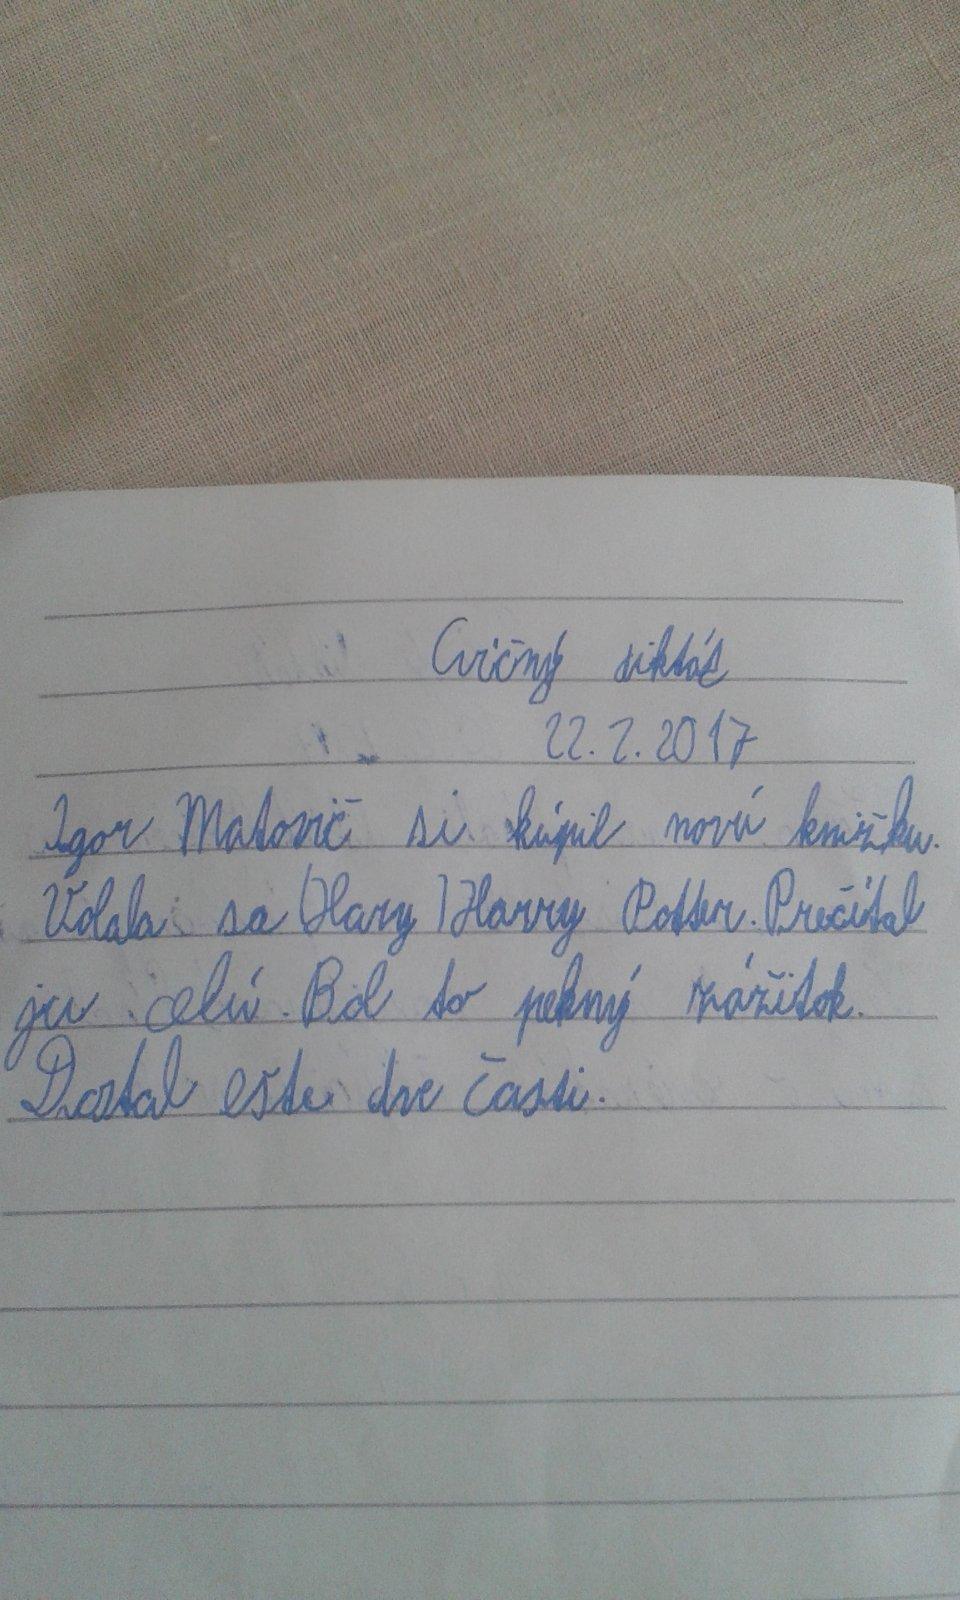 Cvičný diktát
22. 2. 2017
Igor Matovič si kúpil novú knižku.
Volala sa (Hary) Harry Potter. Prečítal
ju celú. Bol to pekný zážitok.
Dostal ešte dve časti.